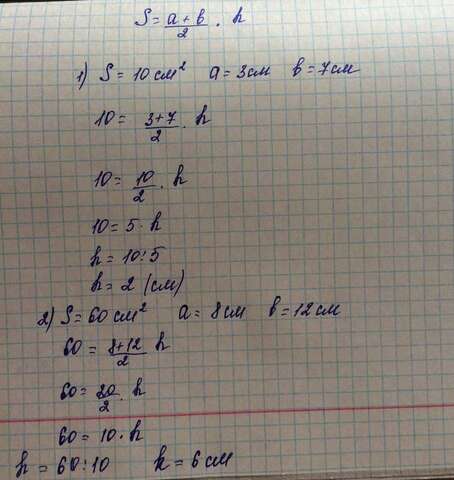 S = a + b / 2 · h
1) S = 10 см² a = 3 см b = 7 см
10 = 3+7 / 2 · h
10 = 10 / 2 · h
10 = 5 · h
h = 10:5
h = 2 (см)
2) S = 60 см² a = 8 см b = 12 см
60 = 8+12 / 2 h
60 = 20 / 2 · h
60 = 10 · h
h = 60:10 h = 6 см